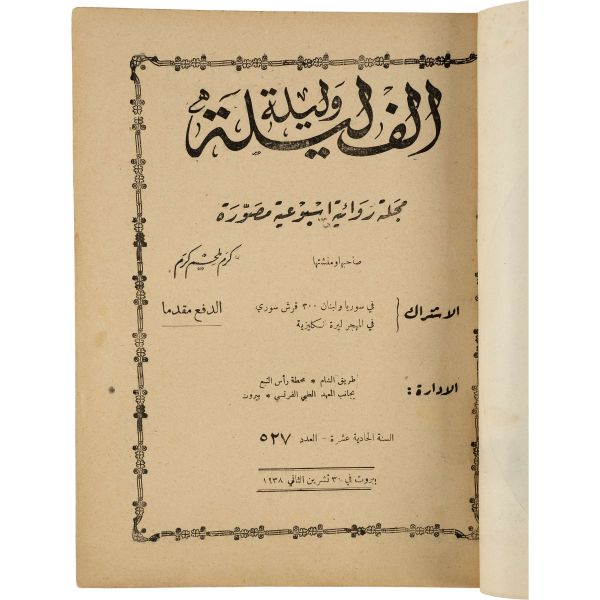 الف ليلة وليلة
مجلة روائية اسبوعية مصوّرة
صاحبها ومنشئها كرم ملحم كرم
الاشتراك { في سوريا ولبنان ٣٠٠ قرش سوري
في المهجر ليرة انكليزية
الدفع مقدما
الادارة : طريق الشام * محطة رأس النبع
بجانب المعهد الطبي الفرنسي * بيروت
السنة الحادية عشرة - العدد ٥٢٧
بيروت في ٣٠ تشرين الثاني ١٩٣٨